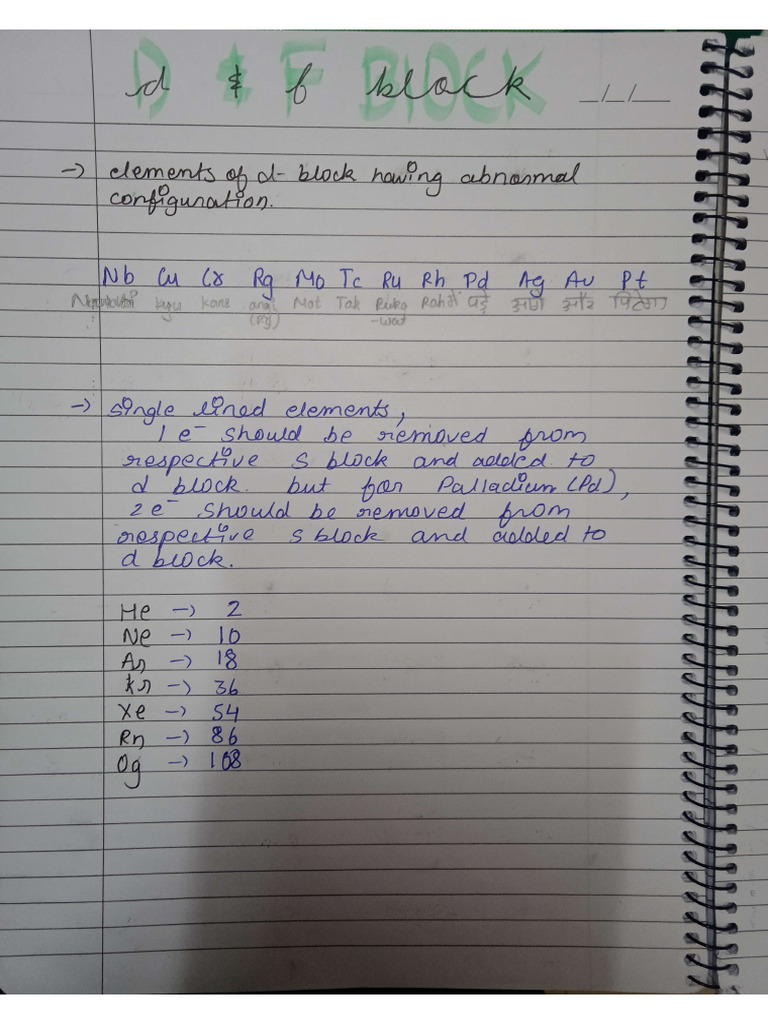 D & F BLOCK
d & f block _/_/__
-> elements of d- block having abnormal
configuration.
Nb Cu Cr Rg Mo Tc Ru Rh Pd Ag Au Pt
kyu kare angi Mot Tak Rukg Rahe पड़े और
(Rg) -wat
-> single lined elements,
1 e⁻ should be removed from
respective s block and added to
d block. but for Palladium (Pd),
2 e⁻ should be removed from
respective s block and added to
d block.
He -> 2
Ne -> 10
Ar -> 18
Kr -> 36
Xe -> 54
Rn -> 86
Og -> 108